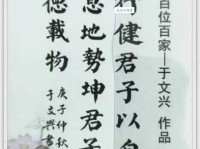 百位百家—于文兴 作品
行健君子以自
息地勢坤君子
德載物
庚子仲秋
于文興書